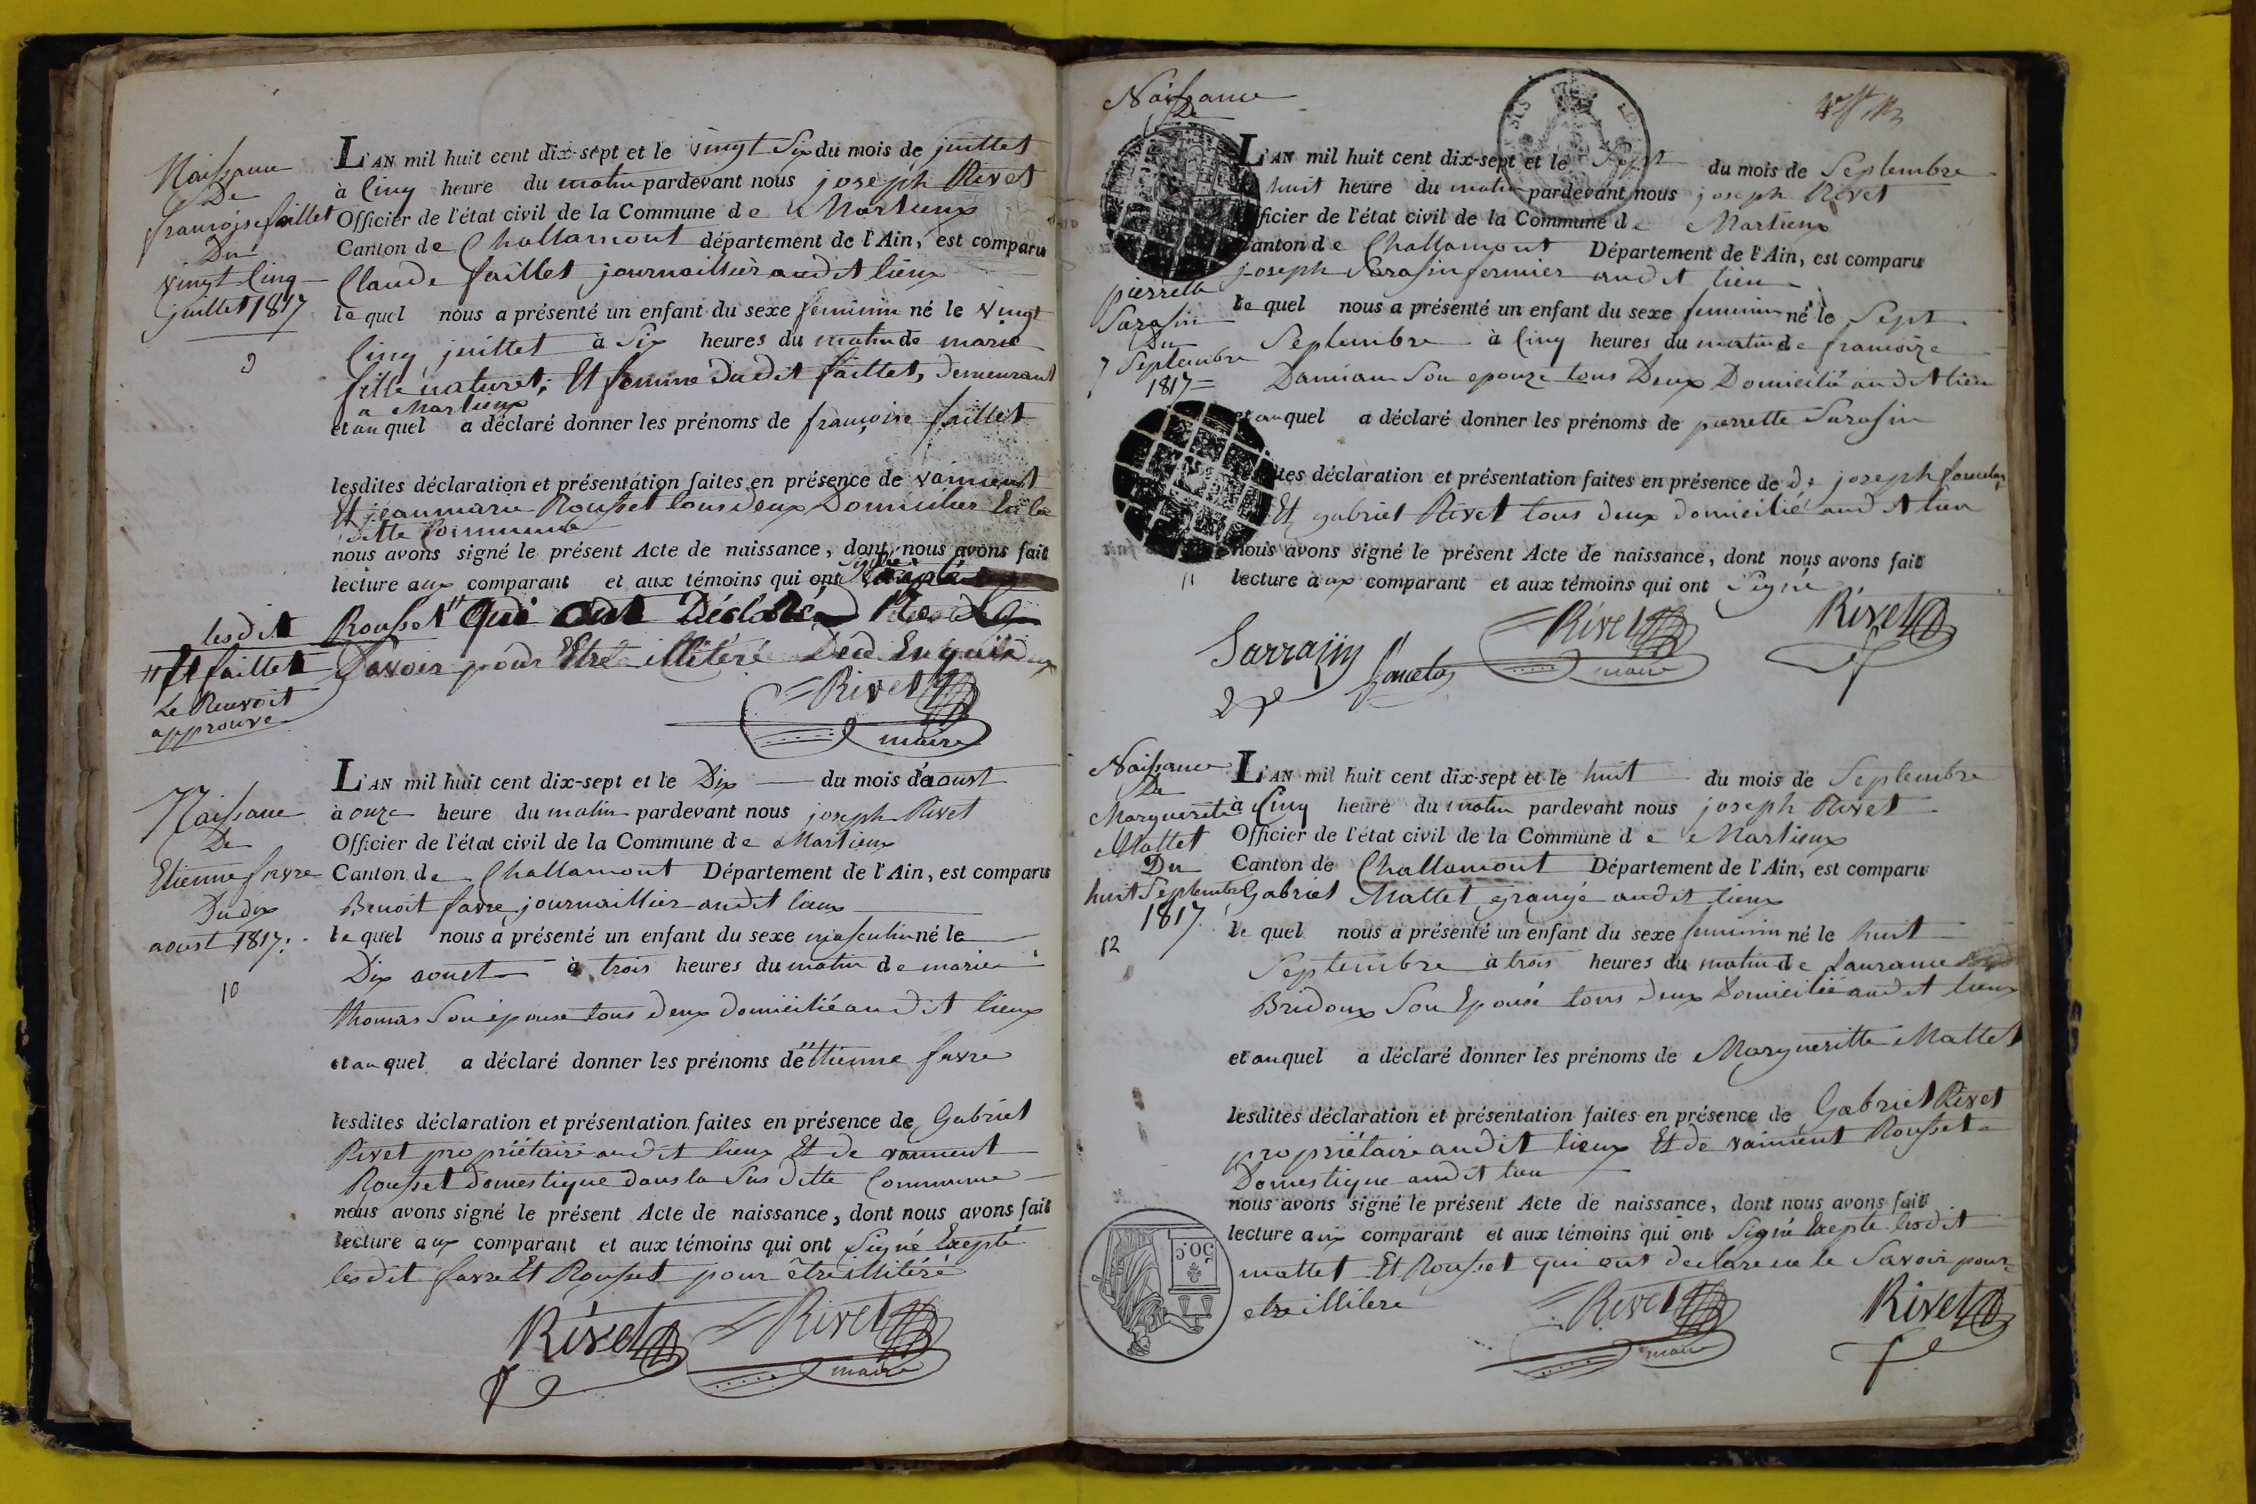 Naissance
De
françoise faillet
Du
vingt Cinq
juillet 1817
9
L'AN mil huit cent dix-sept et le vingt Six du mois de juillet
à Cinq heure du matin pardevant nous joseph Rivet
Officier de l'état civil de la Commune de Marlieux
Canton de Challamont département de l'Ain, est comparu
Claude faillet journaillier audit lieux
lequel nous a présenté un enfant du sexe feminin né le vingt
Cinq juillet à Six heures du matin de marie
fille naturel, Et femme dudit faillet, demeurant
a Marlieux
et auquel a déclaré donner les prénoms de françoise faillet
lesdites déclaration et présentation faites en présence de vainient
Et jeanmarie Rousset tous deux Domicilier En la
ditte Commune
nous avons signé le présent Acte de naissance, dont nous avons fait
lecture aux comparant et aux témoins qui ont Signé
lesdit Rousset " qui ont Déclaré ne le
" Et faillet Savoir pour Etre illitéré
Le Renvoit
approuvé
Rivet
maire
Naissance
De
Etienne favre
Du dix
aoust 1817.
10
L'AN mil huit cent dix-sept et le Dix du mois d'aoust
à onze heure du matin pardevant nous joseph Rivet
Officier de l'état civil de la Commune de Marlieux
Canton de Challamont Département de l'Ain, est comparu
Benoit favre journaillier audit lieux
lequel nous a présenté un enfant du sexe masculin né le
Dix aoust à trois heures du matin de marie
thomas Son épouse tous deux domicilié audit lieux
et auquel a déclaré donner les prénoms d'Ettienne favre
lesdites déclaration et présentation faites en présence de Gabriel
Rivet propriétaire audit lieux Et de vainient
Rousset domestique dans la Sus ditte Commune
nous avons signé le présent Acte de naissance, dont nous avons fait
lecture aux comparant et aux témoins qui ont Signé Excepté
lesdit favre Et Rousset pour être illitéré
Rivet Rivet
maire
Naissance
De
pierrette
Sarasin
Du
7 Septembre
1817
11
L'AN mil huit cent dix-sept et le Sept du mois de Septembre
huit heure du matin pardevant nous joseph Rivet
fficier de l'état civil de la Commune de Marlieux
anton de Challamont Département de l'Ain, est comparu
joseph Sarasin fermier audit lieu
le quel nous a présenté un enfant du sexe feminin né le Sept
Septembre à Cinq heures du matin de françoize
Damian Son epouze tous Deux Domicilié audit lieu
et auquel a déclaré donner les prénoms de pierrette Sarasin
ites déclaration et présentation faites en présence de de joseph
Et gabriel Rivet tous deux domicilié audit lieu
nous avons signé le présent Acte de naissance, dont nous avons fait
lecture aux comparant et aux témoins qui ont Signé
Sarrazin Rivet Rivet
maire
Naissance
De
Marguerite
Mattet
Du
huit Septembre
1817.
12
L'AN mil huit cent dix-sept et le huit du mois de Septembre
à Cinq heure du matin pardevant nous joseph Rivet
Officier de l'état civil de la Commune de Marlieux
Canton de Challamont Département de l'Ain, est comparu
Gabriel Mattet grangé audit lieux
le quel nous a présenté un enfant du sexe feminin né le huit
Septembre à trois heures du matin de Laurance
Bridoux Son Epousé tous deux Domicilié audit lieux
et auquel a déclaré donner les prénoms de Margueritte Mattet
lesdites déclaration et présentation faites en présence de Gabriel Rivet
propriétaire audit lieux Et de vainient Rousset
Domestique audit lieu
nous avons signé le présent Acte de naissance, dont nous avons fait
lecture aux comparant et aux témoins qui ont Signé Excepte lesdit
mattet Et Rousset qui ont declare ne le Savoir pour
etre illitere
Rivet Rivet
maire
50.C